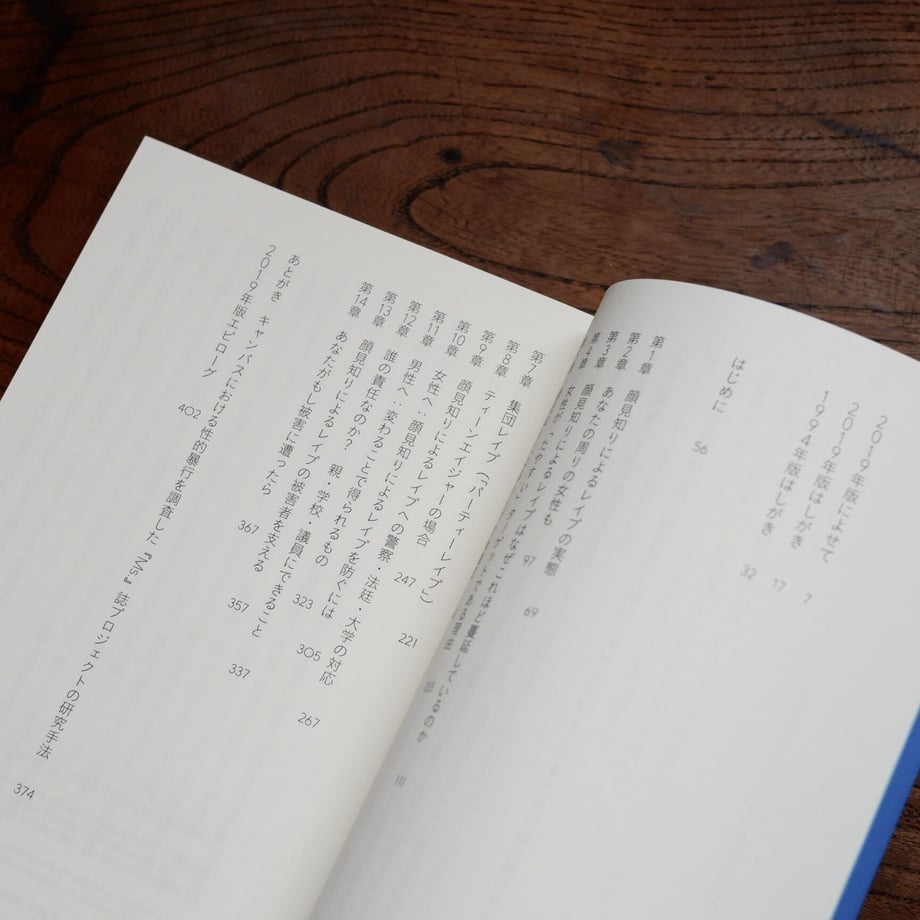 2019年版によせて 7
2019年版はしがき 17
1994年版はしがき 32
はじめに 56
第1章 顔見知りによるレイプの実態 69
第2章 あなたの周りの女性も 97
第3章 顔見知りによるレイプはなぜこれほど蔓延しているのか 111
第4章 女性が
第7章 集団レイプ(「パーティーレイプ」) 221
第8章 ティーンエイジャーの場合 247
第9章 顔見知りによるレイプへの警察・法廷・大学の対応 267
第10章 女性へ:顔見知りによるレイプを防ぐには 305
第11章 男性へ:変わることで得られるもの 323
第12章 誰の責任なのか? 親・学校・議員にできること 337
第13章 顔見知りによるレイプの被害者を支える 357
第14章 あなたがもし被害に遭ったら 367
あとがき キャンパスにおける性的暴行を調査した『Ms.』誌プロジェクトの研究手法 374
2019年版エピローグ 402